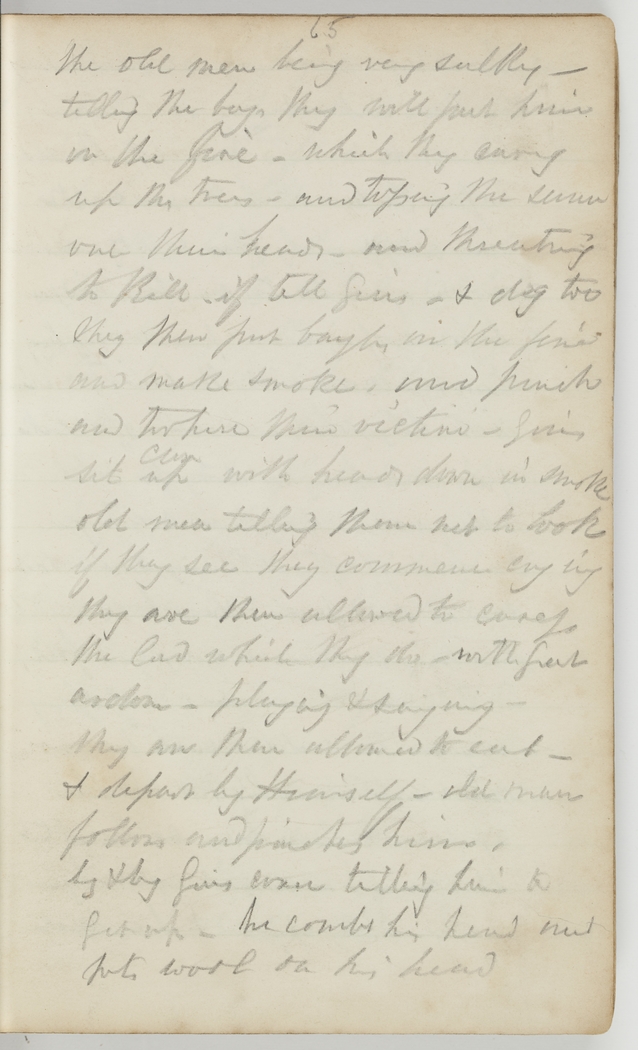 65
the old men being very sulky –
telling the boys they will put him
on the fire – which they carry
up the trees – and tossing the same
over their heads – and threating
to Kill if tell Gins – & dog too
they then put boughs in the fire
and make smoke, and pinch
and torture their victim – Gins
sit up with heads down in smoke
old men telling them not to look
if they see they commence crying
they are then allowed to caress
the Lad which they do – with great
ardor – playing & singing –
they are then allowed to eat –
& depart by Himself – old man
follows and pinches him.
by & by Gins come telling him to
get up – he combs his head and
puts wool on his head